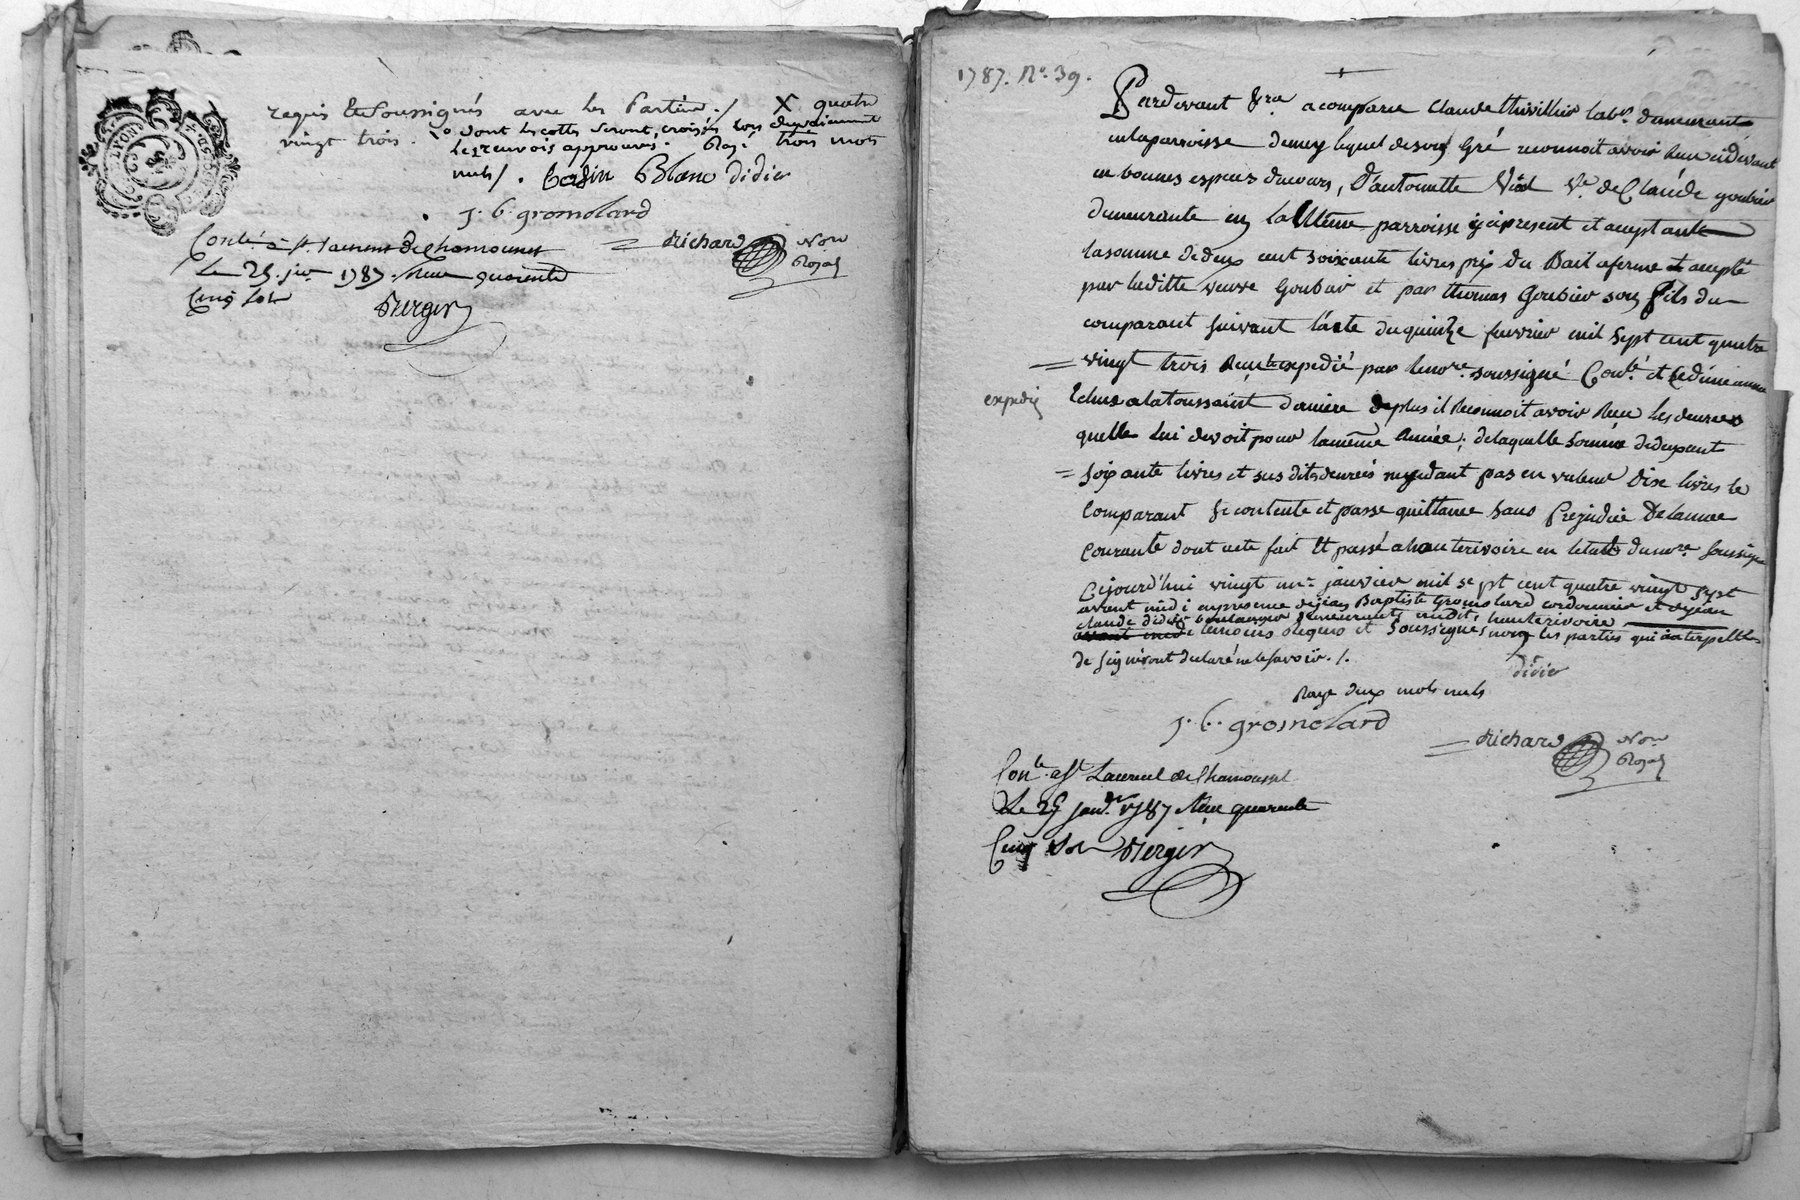 LYON
requis et soussignés avec les Parties ./ X quatre
vingt trois. dont les cottes seront croisés lors du paiement
les renvois approuvés. Rayé trois mots
nuls /. Basin Blanc didier
J. B. gromolard
Conlé à St laurent de Chamousset
Richard Nore
Royal
Le 25 jer 1787. Reçu quarente
Cinq sols
Berger
1787. No. 39.
Pardevant Nre a comparu Claude thivillier labr. demeurant
en la parroisse demey lequel de son Gré reconnoit avoir Recu cidevant
en bonnes especes du cours, D'antoinette Vial Ve de Claude goubier
demeurante en la Même parroisse icy present et aceptante
la somme de deux cent soixante livres prix du Bail a ferme et acepté
par laditte veuve Goubier et par thomas Goubier son fils du
comparant suivant l'acte du quinze fevrier mil sept cent quatre
vingt trois Recu et expedié par le nore. soussigné Conlé. et
expedié
Echue a la toussaint derniere deplus il Reconnoit avoir Recu les denrees
quelle lui devoit pour la même Année; de laquelle somme de deux cent
soixante livres et sus dits denrées n'excedant pas en valeur Dix livres le
Comparant se contente et passe quittance sans Prejudice De l'année
Courante dont acte fait Et passé a hauterivoire en letude du nore. soussigné
Cejourd'hui vingt un janvier mil sept cent quatre vingt sept
avant midi en presence de jean Baptiste Gromolard cordonnier et de jean
claude didier boulanger demeurants audit hauterivoire
avant midi temoins Requis et Soussignés non les parties qui interpellés
de signer ont declaré ne le savoir ./.
didier
Rayé deux mots nuls
J. B. gromolard
Richard Nore
Royal
Conlé a St Laurent de Chamousset
Le 25 janv. 1787 Reçu quarente
Cinq sols Berger